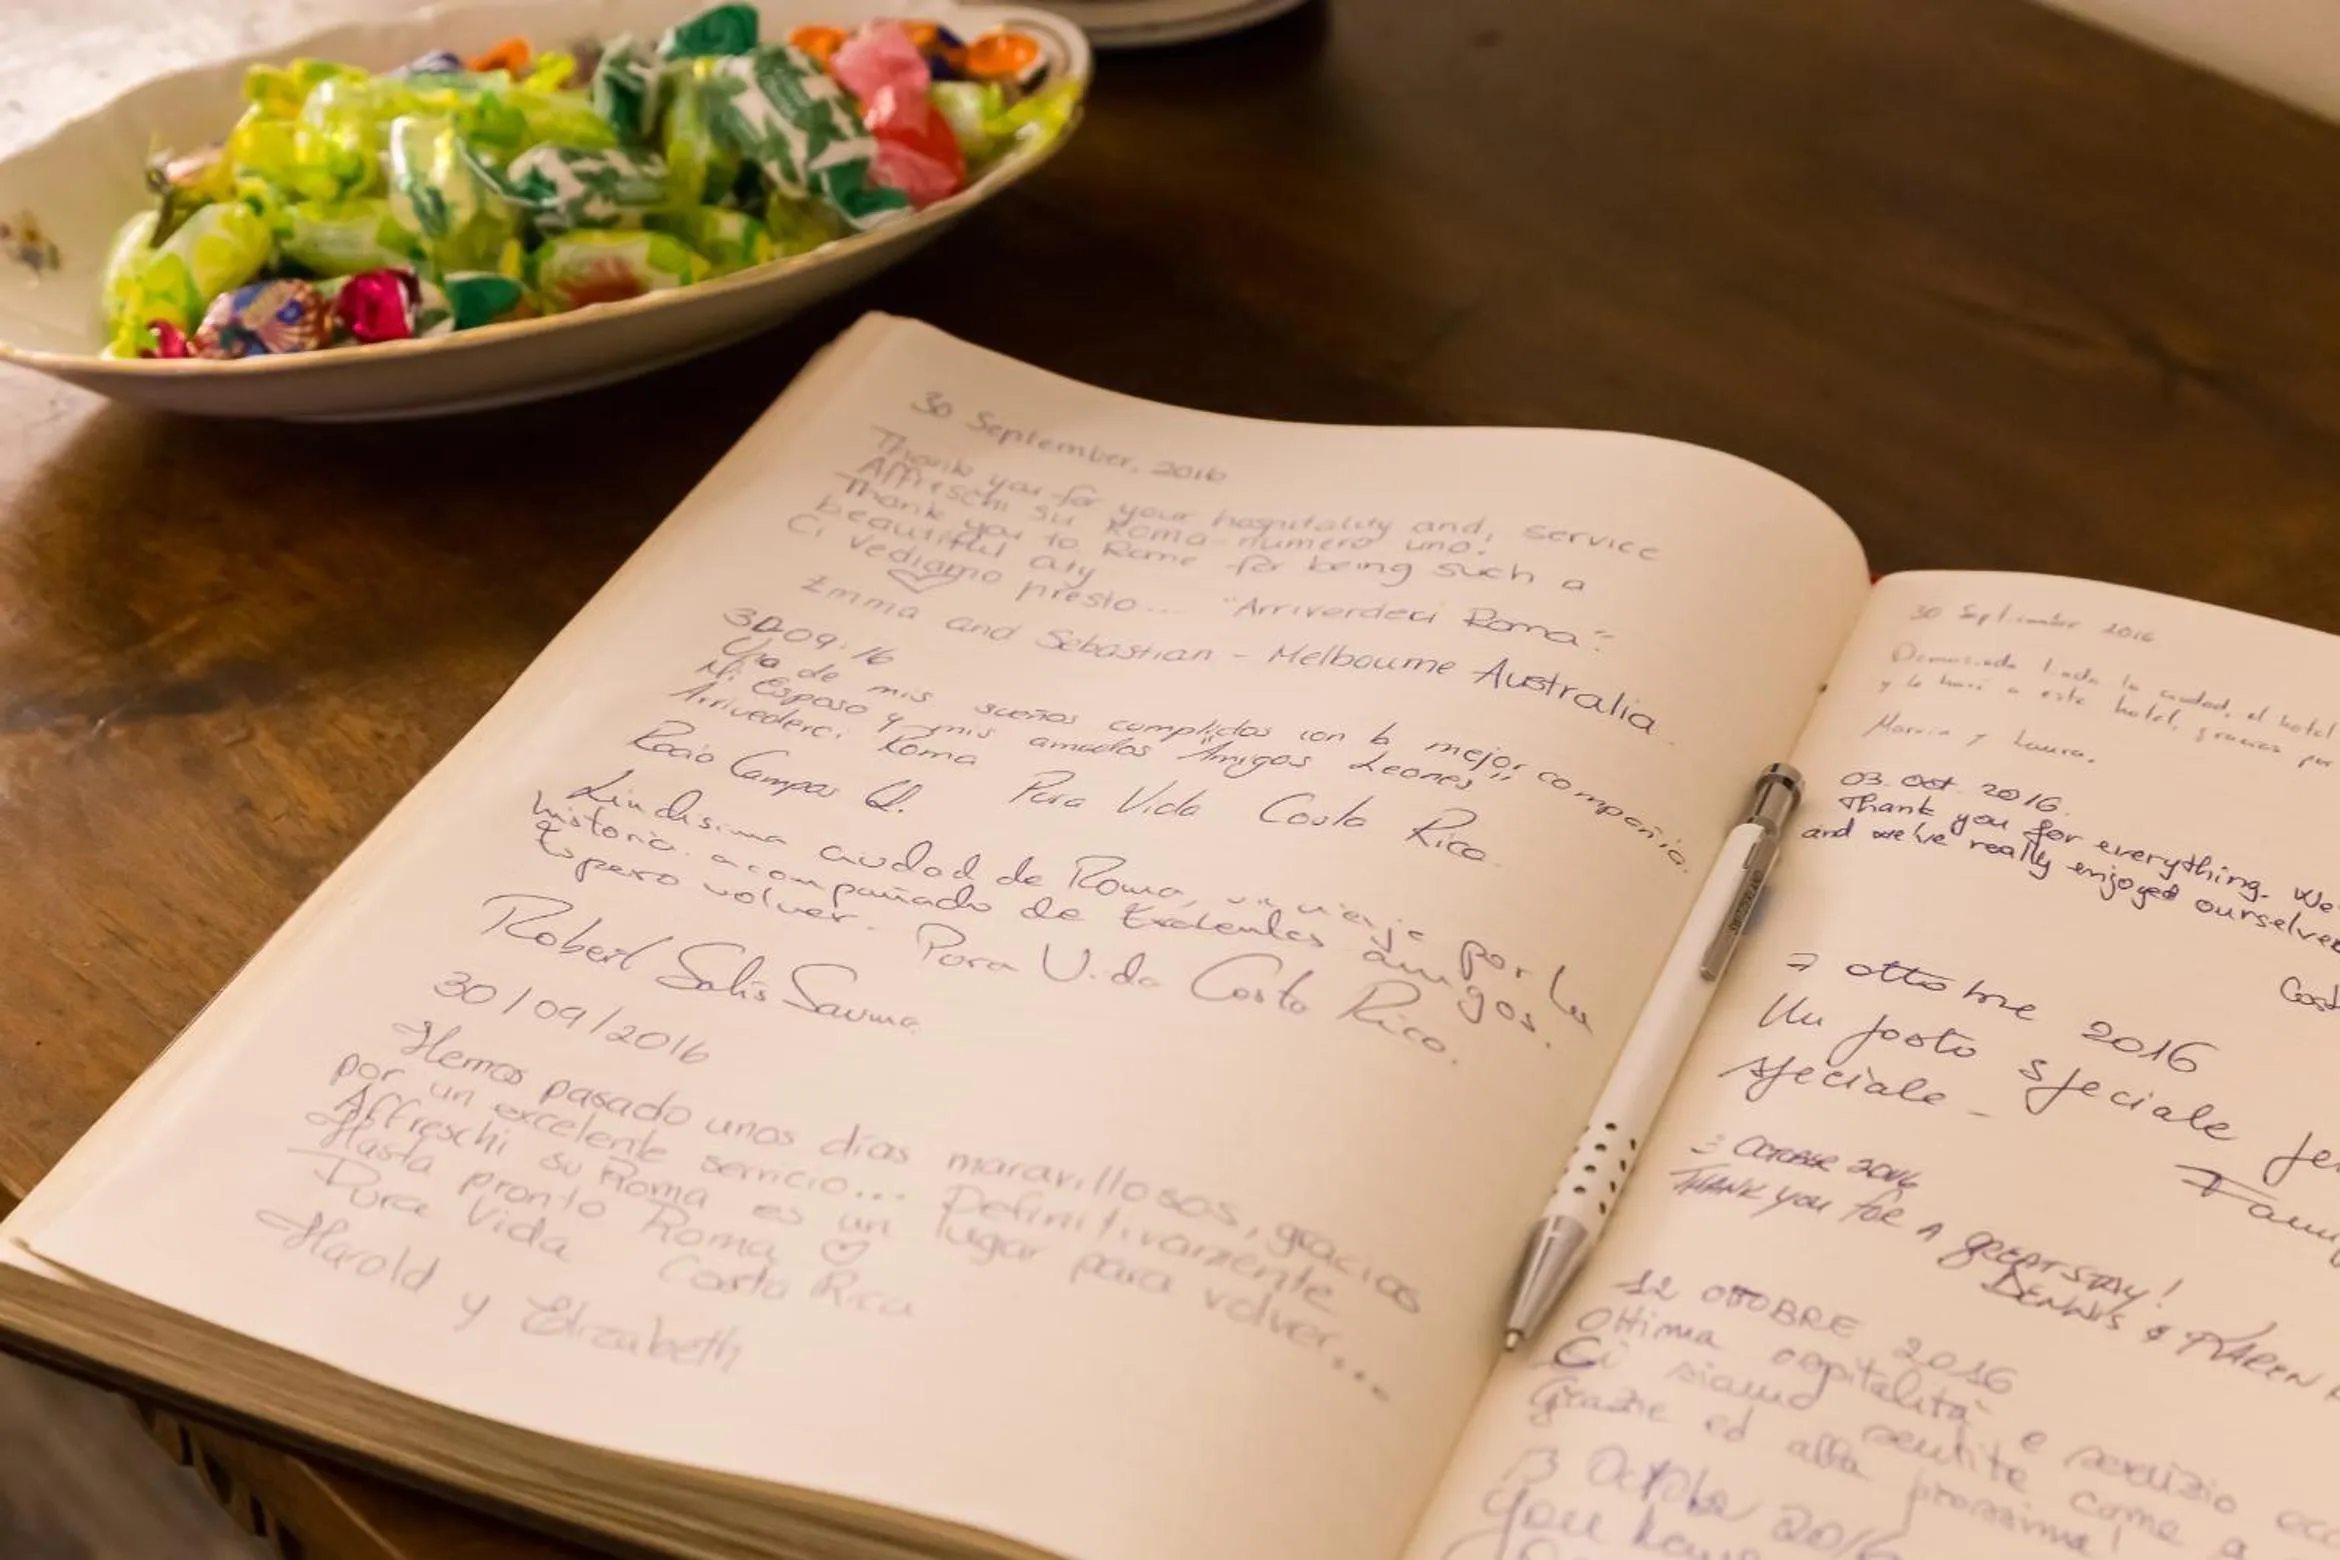 30 September, 2016
Thank you for your hospitality and, service
Affreschi su Roma numero uno.
Thank you to Rome for being such a
beautiful city
Ci vediamo presto... "Arriverdeci Roma".
Emma and Sebastian - Melbourne Australia.
30.09.16
Una de mis sueños cumplidos con la mejor compañia.
Mi Esposo y mis amados "Amigos Leones"
Arrivederci Roma Pura Vida Costa Rica.
Rocio Campos Q.
Lindisima ciudad de Roma, un viaje por la
historia acompañado de Excelentes amigos.
Espero volver. Pura Vida Costa Rica.
Robert Solis Sauma
30/09/2016
Hemos pasado unos días maravillosos, gracias
por un excelente servicio... Definitivamente
Affreschi su Roma es un lugar para volver...
Hasta pronto Roma
Pura Vida Costa Rica
Harold y Elizabeth
30 Septiembre 2016
la ciudad, el hotel
y lo haré a este hotel, gracias por
y Laura.
03. oct. 2016.
Thank you for everything. We
and we've really enjoyed ourselves
Cost
7 ottobre 2016
Un posto speciale per
speciale -
Fam
3 OCTOBER 2016
THANK YOU FOR A GREAT STAY!
DENNIS & KAREN
12 OTTOBRE 2016
Ottima ospitalità e servizio ecc
Ci siamo sentite come a
Grazie ed alla prossima!
13 October 2016
You have